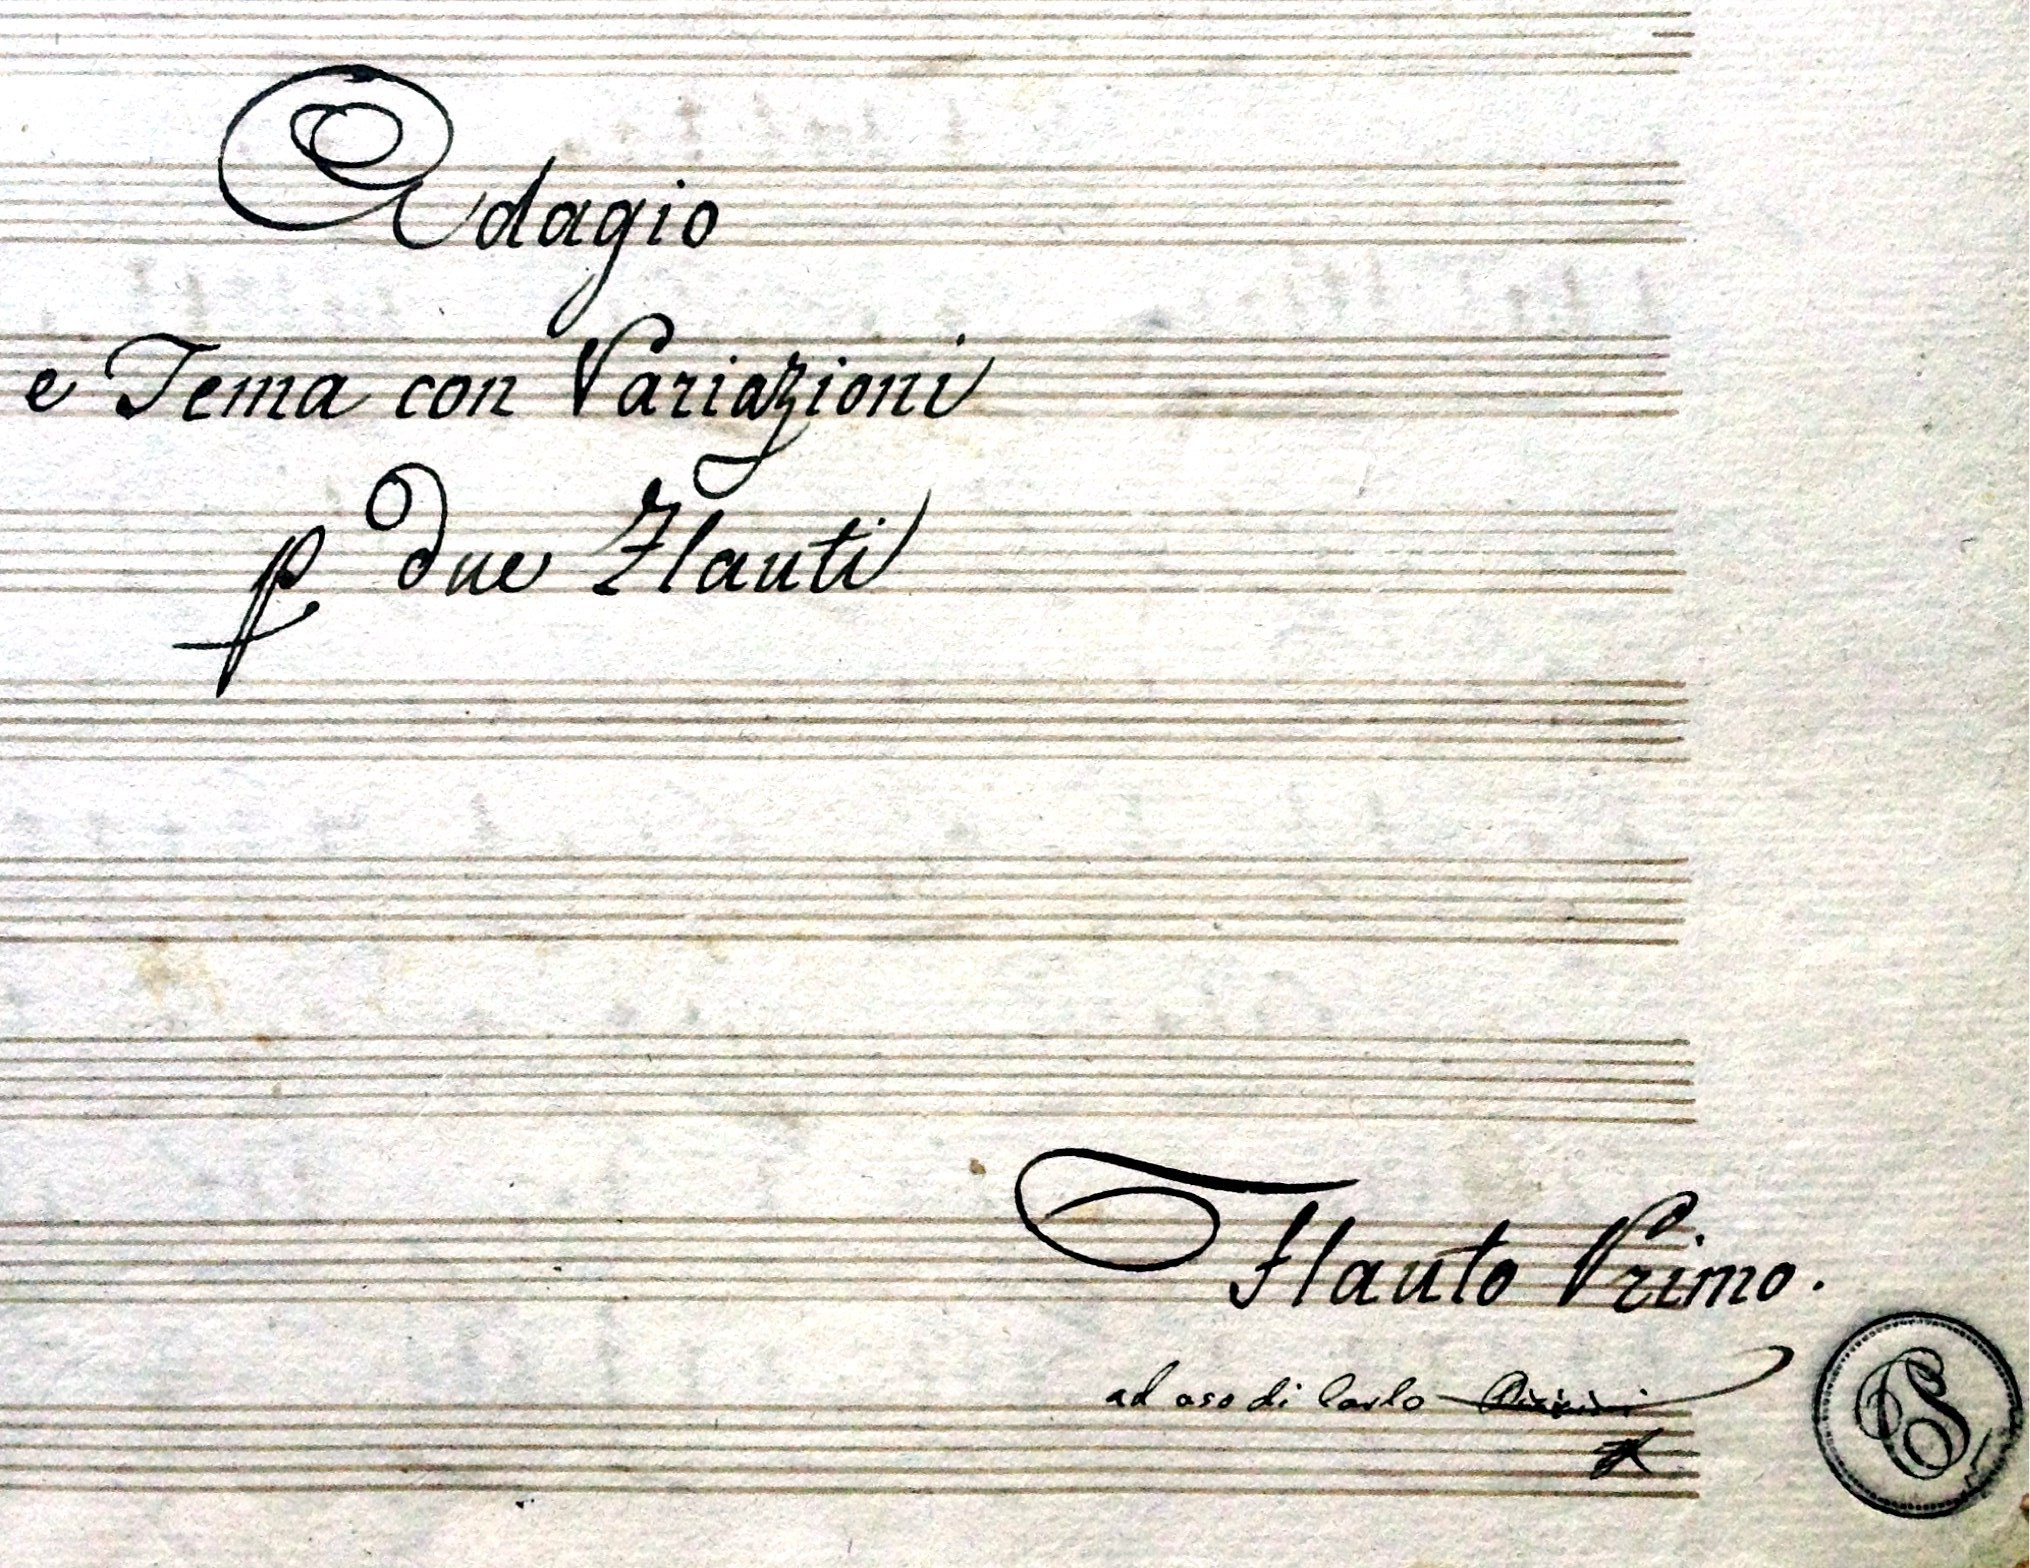 Adagio
e Tema con Variazioni
p due Flauti
Flauto Primo.
ad uso di Carlo
CS